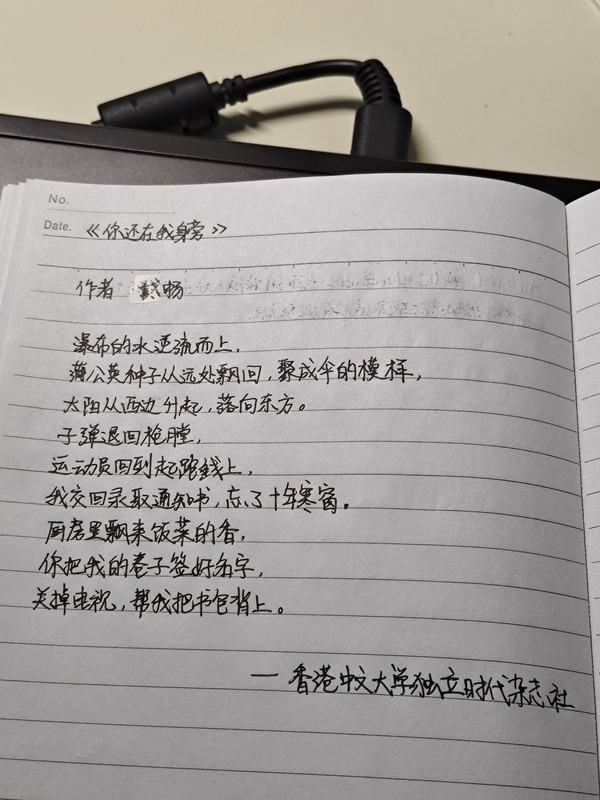 No.
Date. 《你还在我身旁》
作者 戴畅
瀑布的水逆流而上,
蒲公英种子从远处飘回,聚成伞的模样,
太阳从西边升起,落向东方。
子弹退回枪膛,
运动员回到起跑线上,
我交回录取通知书,忘了十年寒窗。
厨房里飘来饭菜的香,
你把我的卷子签好名字,
关掉电视,帮我把书包背上。
— 香港中文大学独立时代杂志社